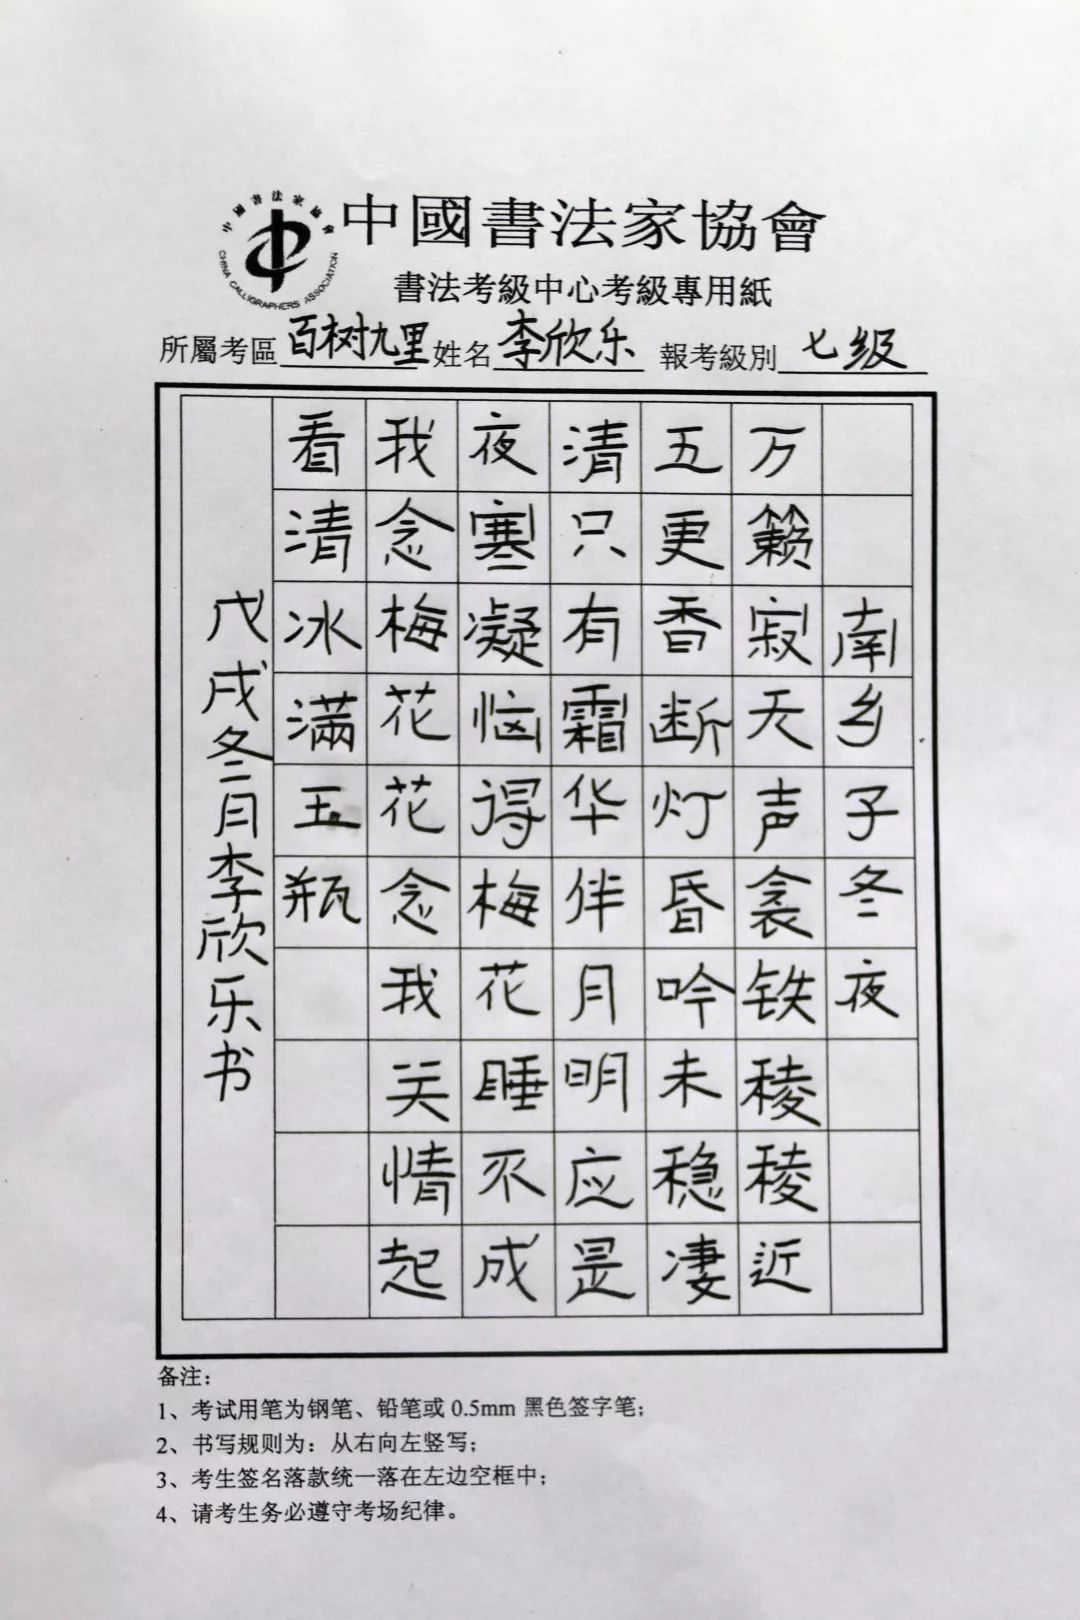 中國書法家協會
CHINA CALLIGRAPHERS ASSOCIATION
中國書法家協會
書法考級中心考級專用紙
所屬考區百树九里 姓名李欣乐 報考級別七级
南乡子冬夜
万籁寂天声衾铁稜稜近
五更香断灯昏吟未稳凄
清只有霜华伴月明应是
夜寒凝恼得梅花睡不成
我念梅花花念我关情起
看清冰满玉瓶
戊戌冬月李欣乐书
备注：
1、考试用笔为钢笔、铅笔或 0.5mm 黑色签字笔；
2、书写规则为：从右向左竖写；
3、考生签名落款统一落在左边空框中；
4、请考生务必遵守考场纪律。